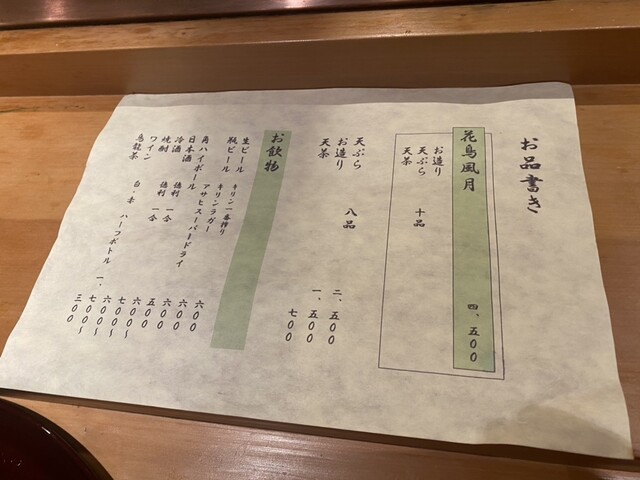 お品書き
花鳥風月 四、五〇〇
お造り
天ぷら 十品
天茶
天ぷら 八品 二、五〇〇
お造り 一、五〇〇
天茶 七〇〇
お飲物
生ビール キリン一番搾り 六〇〇
瓶ビール キリンラガー 六〇〇
アサヒスーパードライ
角ハイボール 五〇〇
日本酒 徳利 一合 六〇〇
冷酒 徳利 一合 七〇〇〜
焼酎 六〇〇〜
ワイン 白・赤 ハーフボトル 一、七〇〇〜
烏龍茶 三〇〇